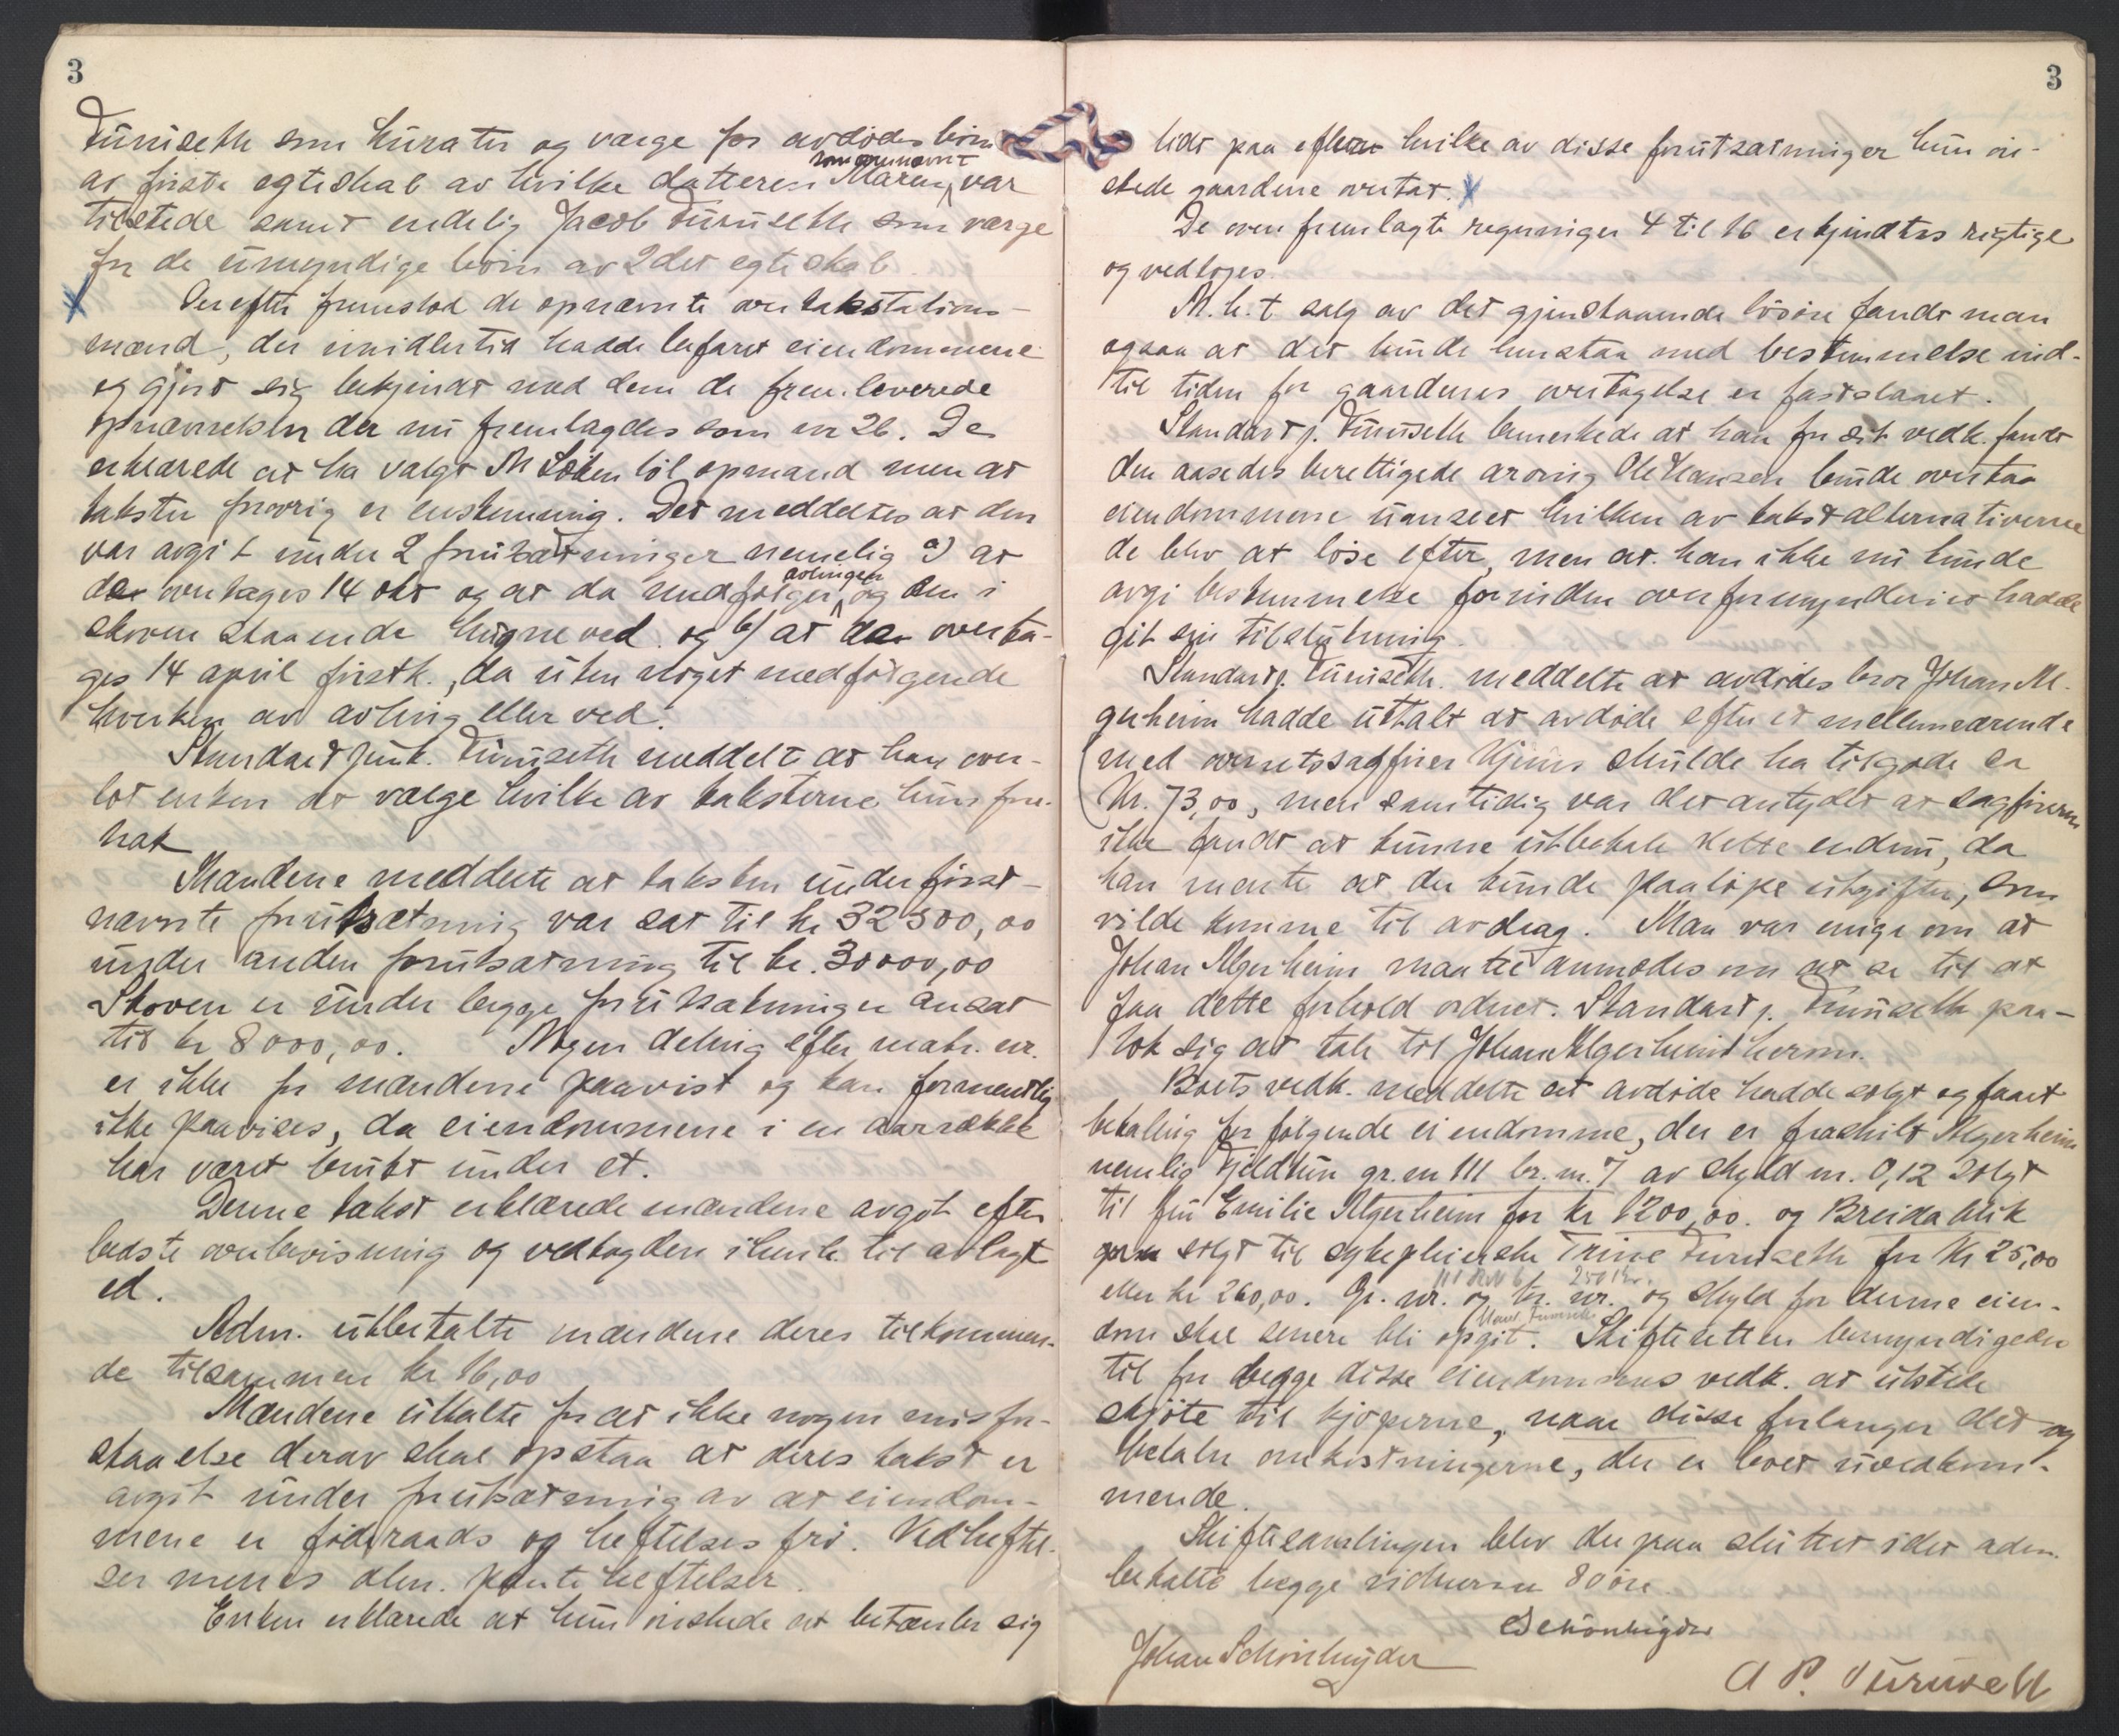 3
Furuseth som kurator og værge for avdødes børn
av første egteskab av hvilke datteren Maren, som ovennævnt var
tilstede samt endelig Jacob Furuseth som værge
for de umyndige børn av 2det egteskab.
Derefter fremstod de opnævnte overtakstations-
mænd, der imidlertid hadde befaret eiendommene
og gjort sig bekjendt med dem de fremleverede
opnævnelsen der nu fremlagdes som nr 26. De
erklærede at ha valgt M Løken til opmand men at
taksten forøvrig er enstemmig. Det meddeltes at den
var avgit under 2 forutsætninger nemelig a) at
der overtages 14 okt og at da medfølger avlingen og den i
skoven staaende hugne ved og b) at der overta-
ges 14 april førstk., da uten noget medfølgende
hverken av avling eller ved.
Standartjunk. Furuseth meddelte at han over-
lot enken at vælge hvilke av taksterne hun fore-
trak
Mændene meddelte at taksten under først-
nævnte forutsætning var sat til kr 32500,00
under anden forutsætning til kr. 30000,00
Skoven er under begge forutsætninger ansat
til kr 8000,00. Nogen deling efter matr. nr.
er ikke for mændene paavist og kan formentlig
ikke paavises, da eiendommene i en aarrække
har været brukt under et.
Denne takst erklærede mændene avgit efter
bedste overbevisning og vedtog den i henh. til avlagt
ed.
Adm. utbetalte mændene deres tilkommen-
de tilsammen kr 16,00
Mændene uttalte for at ikke nogen misfor-
staaelse derav skal opstaa at deres takst er
avgit under forutsætning av at eiendom-
mene er føderaads og heftelsesfri. Ved heftel-
ser menes alm. panteheftelser.
Enken erklærede at hun ønskede at betænke sig
3
lidt paa efter hvilke av disse forutsætninger hun øn-
skede gaardene overtat.
De oven fremlagte regninger 4 til 16 erkjendtes rigtige
og vedtoges.
M.h.t salg av det gjenstaaende løsøre fandt man
ogsaa at det kunde henstaa med bestemmelse ind-
til tiden for gaardenes overtagelse er fastslaaet.
Standart j. Furuseth bemerkede at han for sit vedk. fandt
den aasædesberettigede arving Ole Hansen burde overtaa
eiendommene uanseet hvilken av takstalternativerne
de blev at løse efter, men at han ikke nu kunde
avgi bestemmelse forinden overformynderiet hadde
git sin tilslutning.
Standart j. Furuseth meddelte at avdødes bror Johan Al-
gerheim hadde uttalt at avdøde efter et mellemværende
med overretssagfører Hjems skulde ha tilgode ca
kr. 73,00, men samtidig var det antydet at sagføreren
ikke fandt at kunne utbetale dette endnu, da
han mente at der kunde paaløpe utgifter, som
vilde komme til avdrag. Man var enige om at
Johan Algerheim maatte anmodes om at se til at
faa dette forhold ordnet. Standart j. Furuseth paa-
tok sig at tale til Johan Algerheim herom.
Boets vedk. meddelte at avdøde hadde solgt og faaet
betaling for følgende eiendomme, der er fraskilt Algerheim
nemlig Fjeldtun gr. nr 111 br. nr. 7 av skyld m. 0,12 solgt
til fru Emilie Algerheim for kr 1200,00. og Breidablik
solgt til sykepleierske Trine Furuseth for kr 25,00
eller kr 260,00. Gr. nr. og br. nr. og skyld for denne eien-
dom skal senere bli opgit. Skifteretten bemyndigedes
til for begge disse eiendommes vedk. at utstede
skjøte til kjøperne, naar disse forlanger det og
betaler omkostningerne, der er boet uvedkom-
mende.
Skiftesamlingen blev derpaa sluttet idet adm.
betalte begge vidnerne 80 øre.
Schønhøyder
Johan Schønhøyder
A P. Furuseth